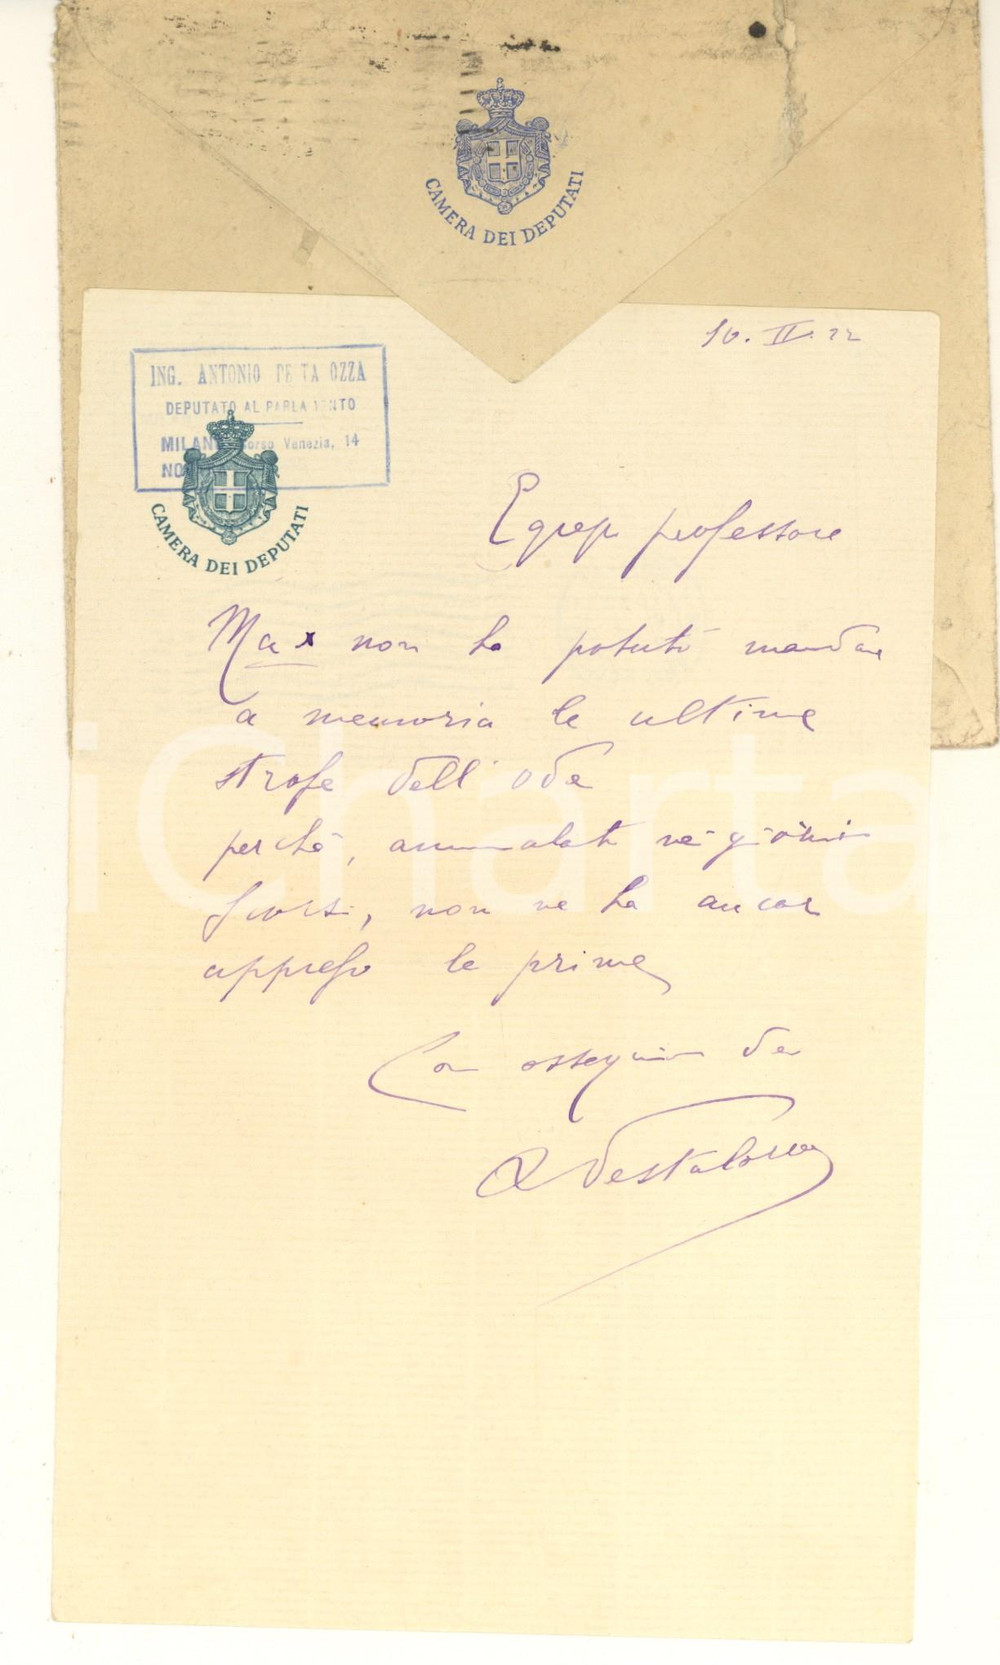 CAMERA DEI DEPUTATI
10. II. 22
ING. ANTONIO PE TA OZZA
DEPUTATO AL PARLA ENTO
MILAN Corso Venezia, 14
NO
CAMERA DEI DEPUTATI
Egregio professore
Max non ha potuto mandare
a memoria le ultime
strofe dell'ode
perchè, ammalato nei giorni
scorsi, non ne ha ancora
appreso le prime
Con ossequi da
A Pestalozza
iCharta